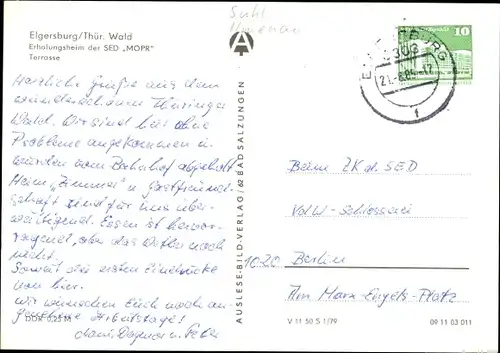 Elgersburg/Thür. Wald
Erholungsheim der SED „MOPR"
Terrasse
Suhl
Ilmenau
10
ELGERSBURG
6303
Herzliche Grüße aus dem
wunderschönen Thüringer
Wald. Wir sind hier ohne
Probleme angekommen u.
wurden vom Bahnhof abgeholt.
Heim, Zimmer u. Gastfreund-
schaft sind für uns über-
wältigend. Essen ist hervor-
ragend, aber das Wetter noch
nicht.
Soweit die ersten Eindrücke
von hier.
Wir wünschen Euch noch an-
genehme Arbeitstage!
Dagmar u. Peter
DDR 0,25 M
AUSLESE-BILD-VERLAG / 62 BAD SALZUNGEN
Beim ZK d. SED
VdW - Schlosserei
1020 Berlin
Am Marx-Engels-Platz
V 11 50 S 1/79
09 11 03 011